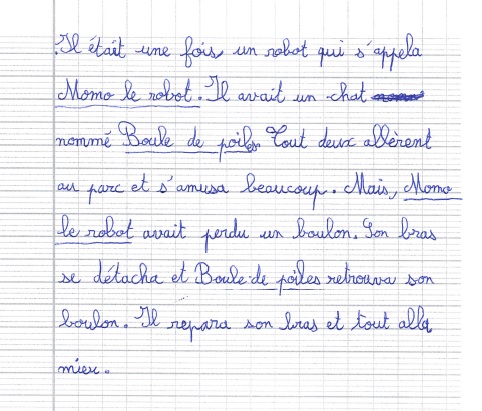 Il était une fois un robot qui s'appela
Momo le robot. Il avait un chat
nommé Boule de poiles. Tout deux allèrent
au parc et s'amusa beaucoup. Mais, Momo
le robot avait perdu un boulon. Son bras
se détacha et Boule de poiles retrouva son
boulon. Il répara son bras et tout alla
mieu.